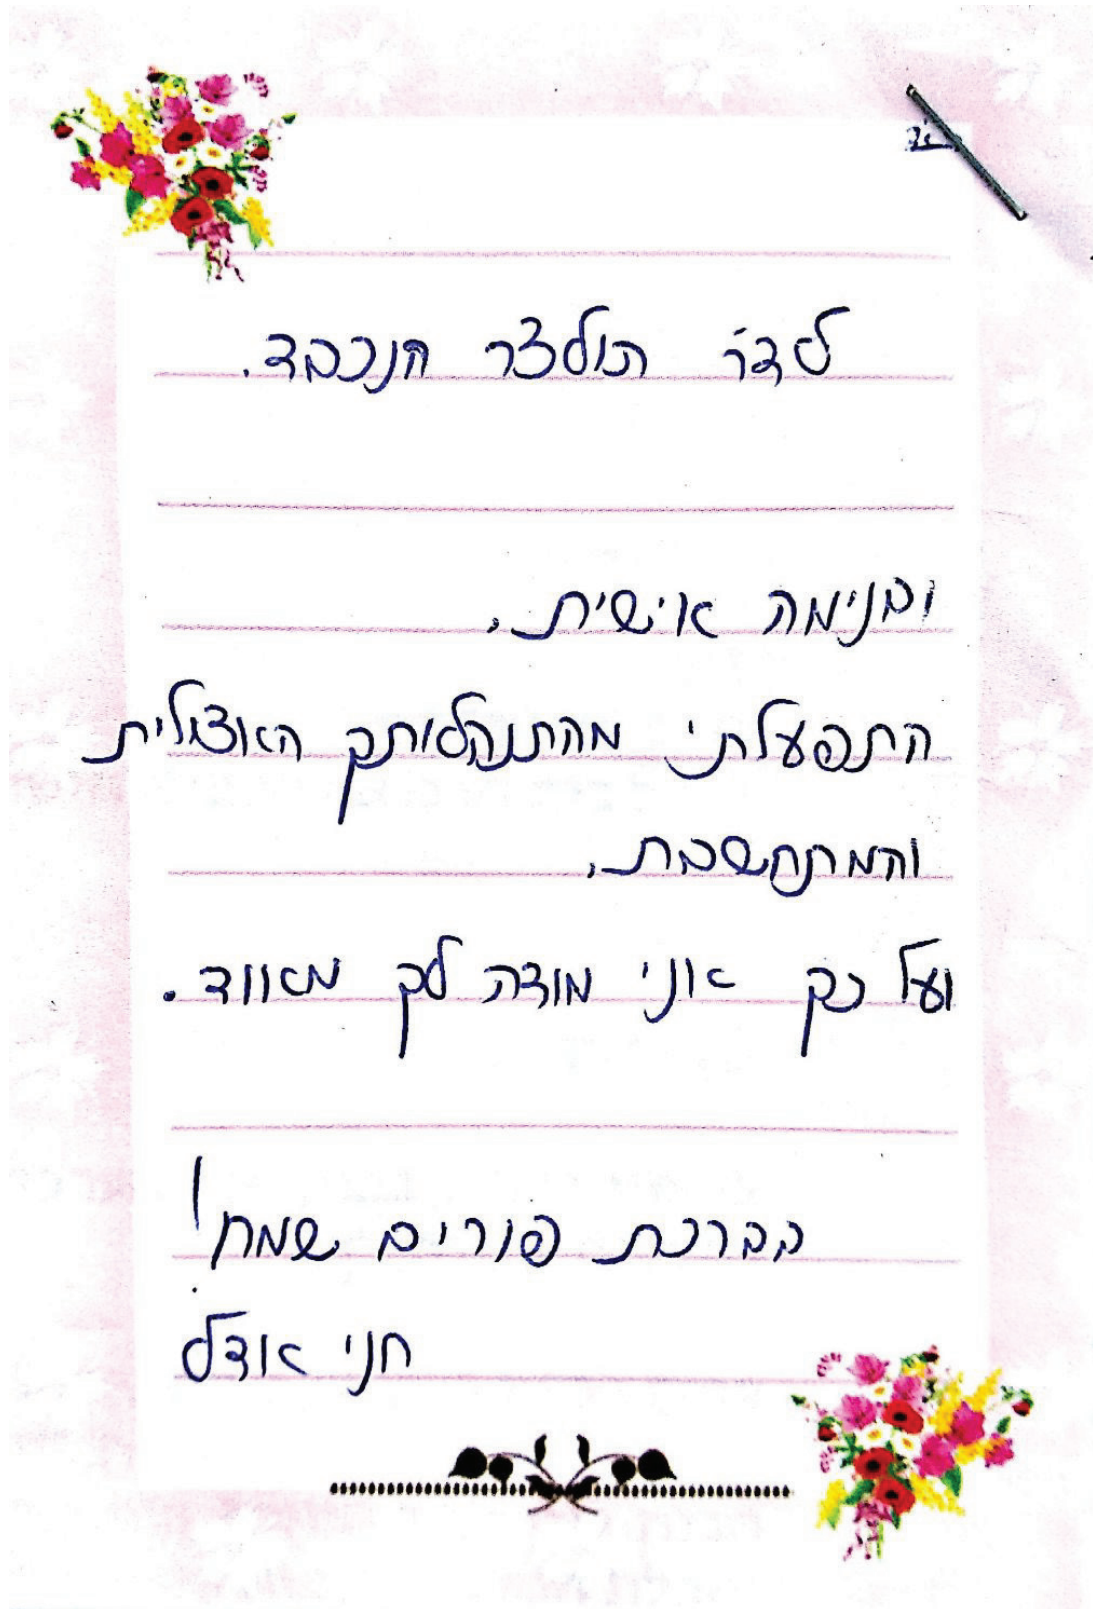 בס"ד
לדר' הולצר הנכבד.
ובנימה אישית,
התפעלתי מהתנהלותך האצילית
והמתחשבת,
ועל כך אני מודה לך מאווד.
בברכת פורים שמח!
חני אנדל